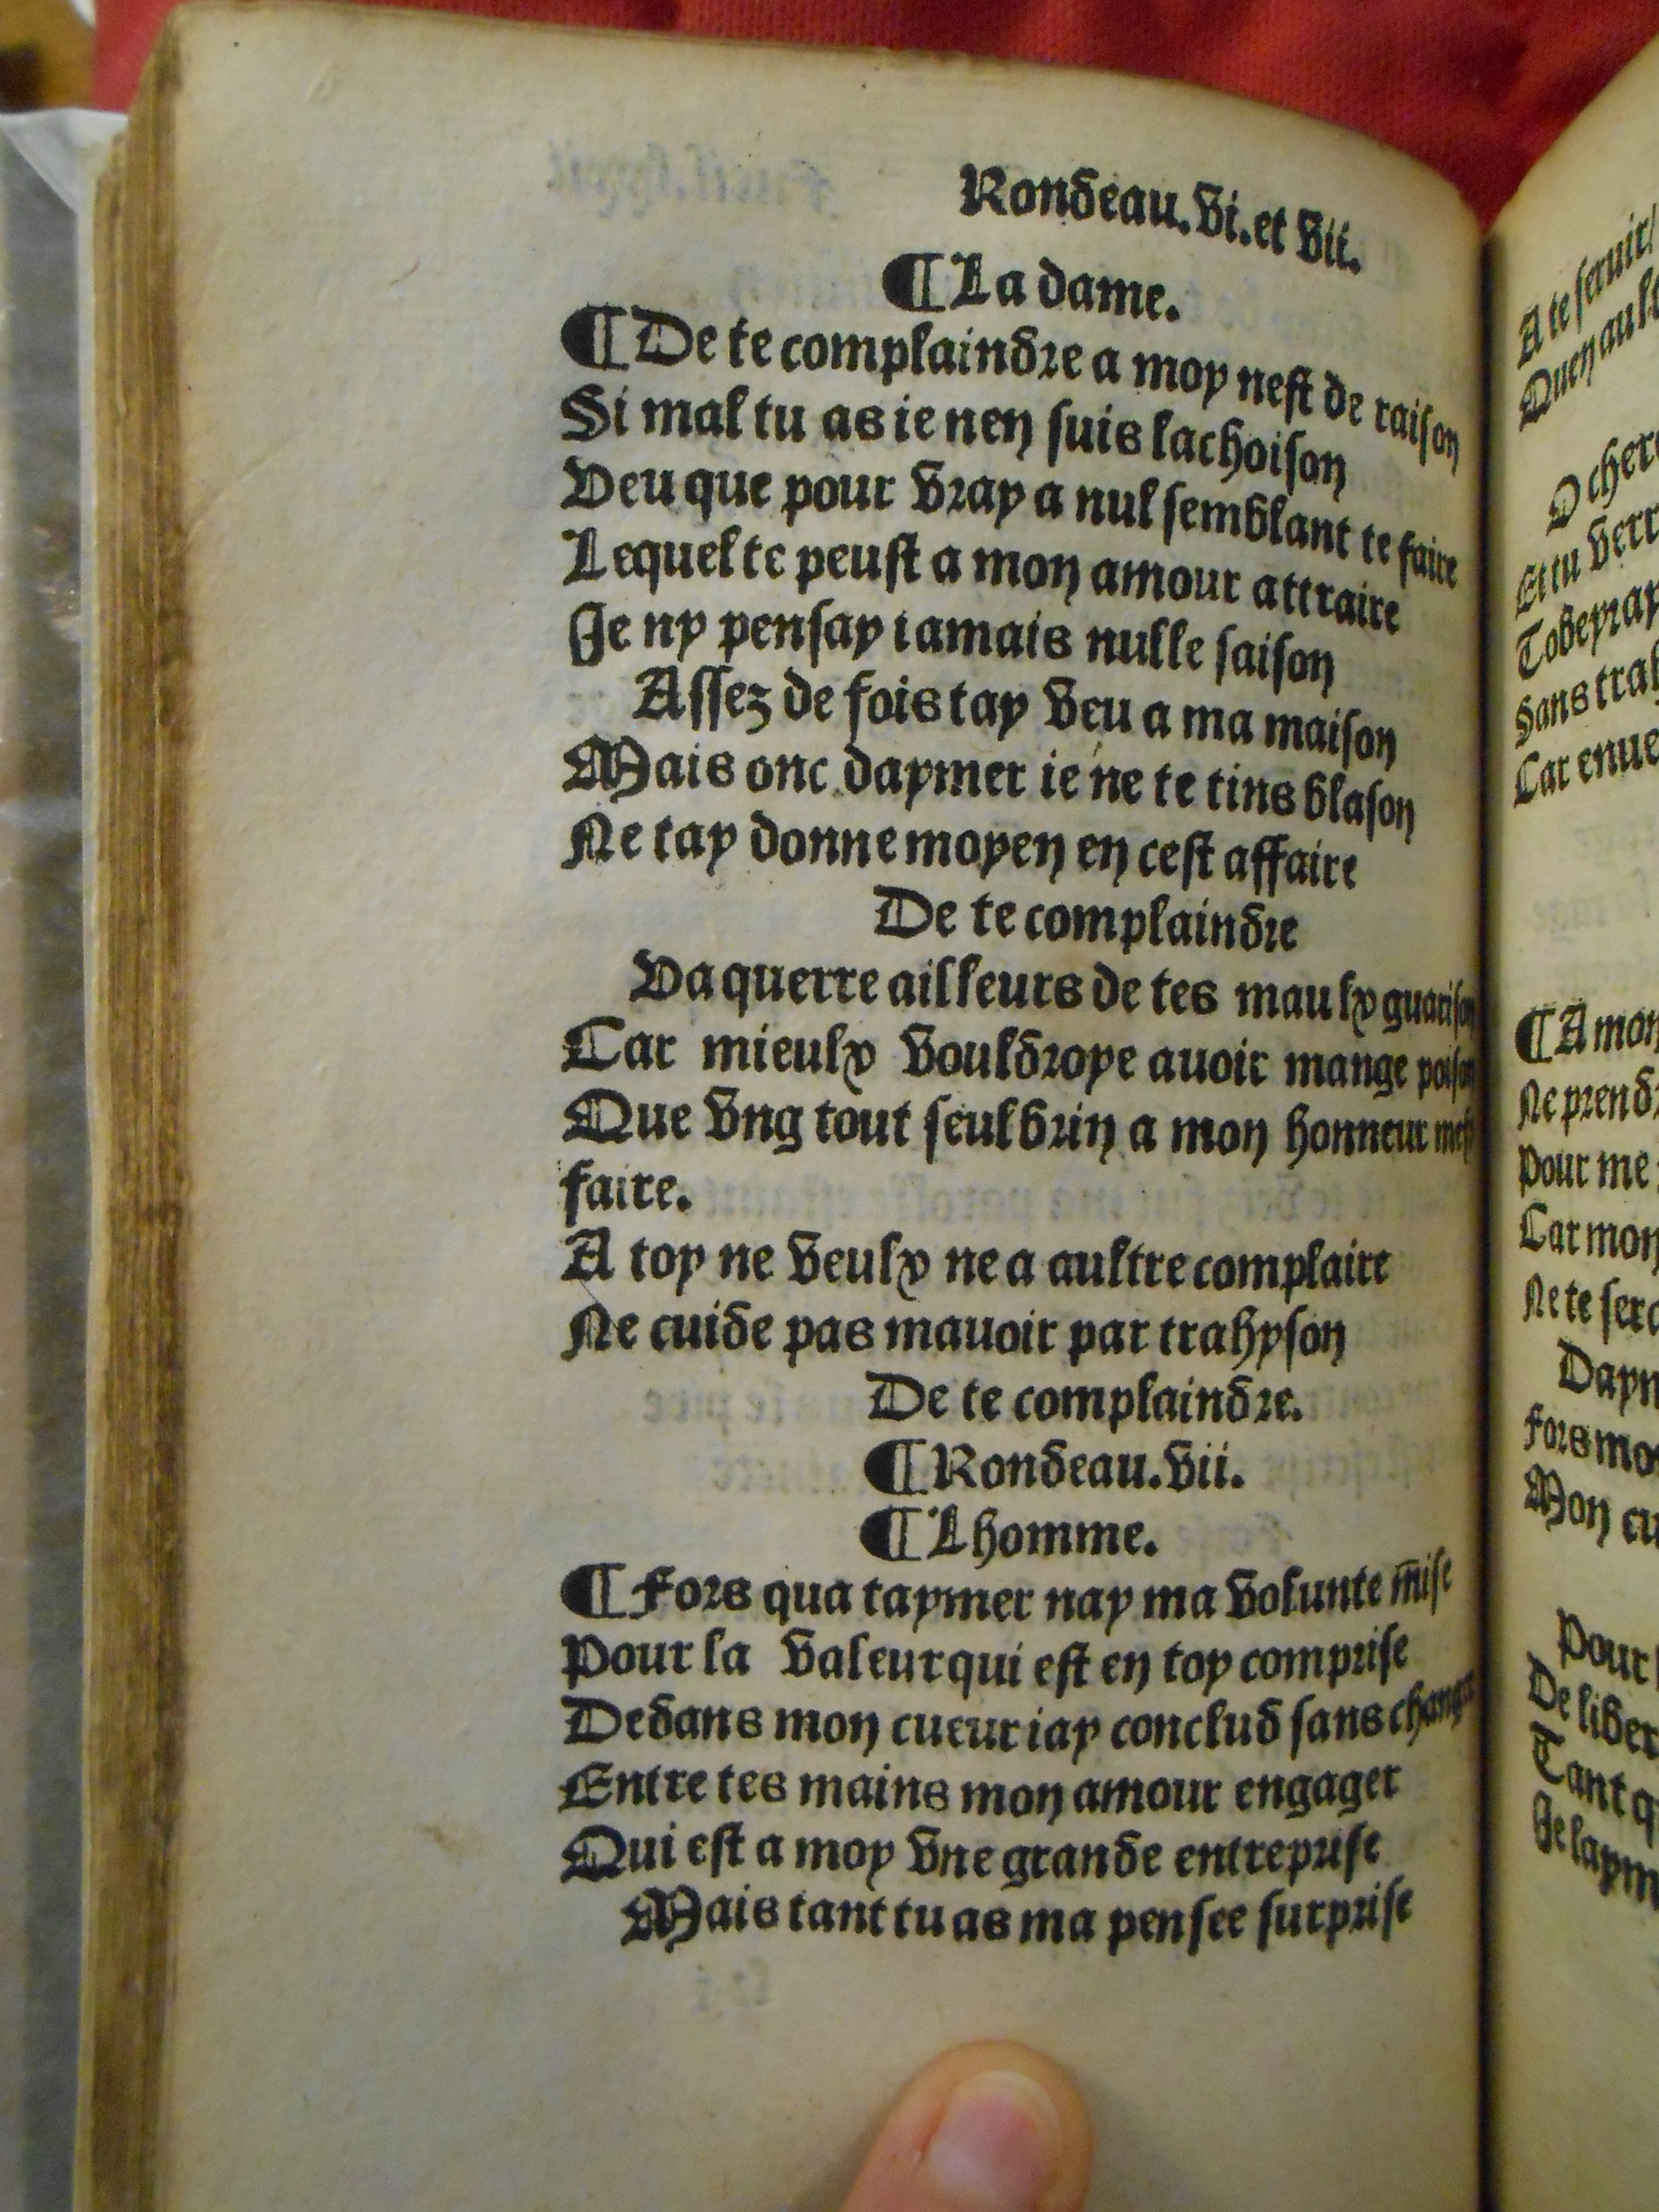 Rondeau.vi.et vii.
¶La dame.
¶De te complaindre a moy nest de raison
Si mal tu as ie nen suis lachoison
Veu que pour vray a nul semblant te faire
Lequel te peust a mon amour attraire
Je ny pensay iamais nulle saison
Assez de fois tay veu a ma maison
Mais onc daymer ie ne te tins blason
Ne tay donne moyen en cest affaire
De te complaindre
Va querre ailleurs de tes maulx guarison
Car mieulx vouldroye auoir mange poison
Que vng tout seul brin a mon honneur mef
faire.
A toy ne veulx ne a aultre complaire
Ne cuide pas mauoir par trahyson
De te complaindre.
¶Rondeau.vii.
¶Lhomme.
¶Fors qua taymer nay ma volunte mise
Pour la valeur qui est en toy comprise
Dedans mon cueur iay conclud sans changer
Entre tes mains mon amour engager
Qui est a moy vne grande entreprise
Mais tant tu as ma pensee surprise
A te seruir/
Quen
O
Et tu
Sans
Car
¶A mon
Ne
Pour me
Car mon
Ne te
Fors
Mon
Pour
De
Tant